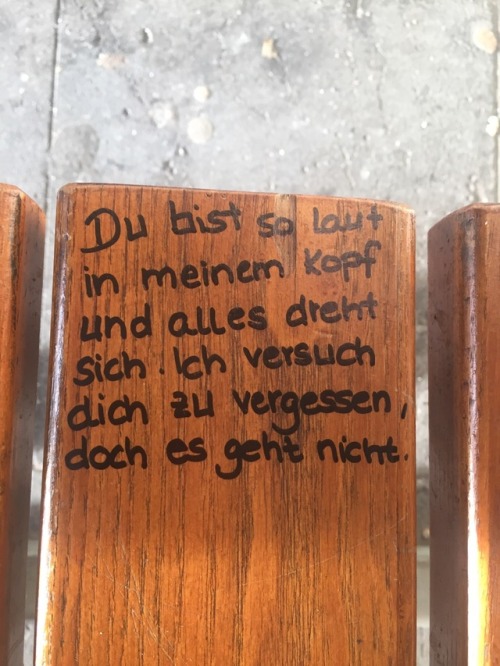 Du bist so laut
in meinem Kopf
und alles dreht
sich. Ich versuch
dich zu vergessen,
doch es geht nicht.